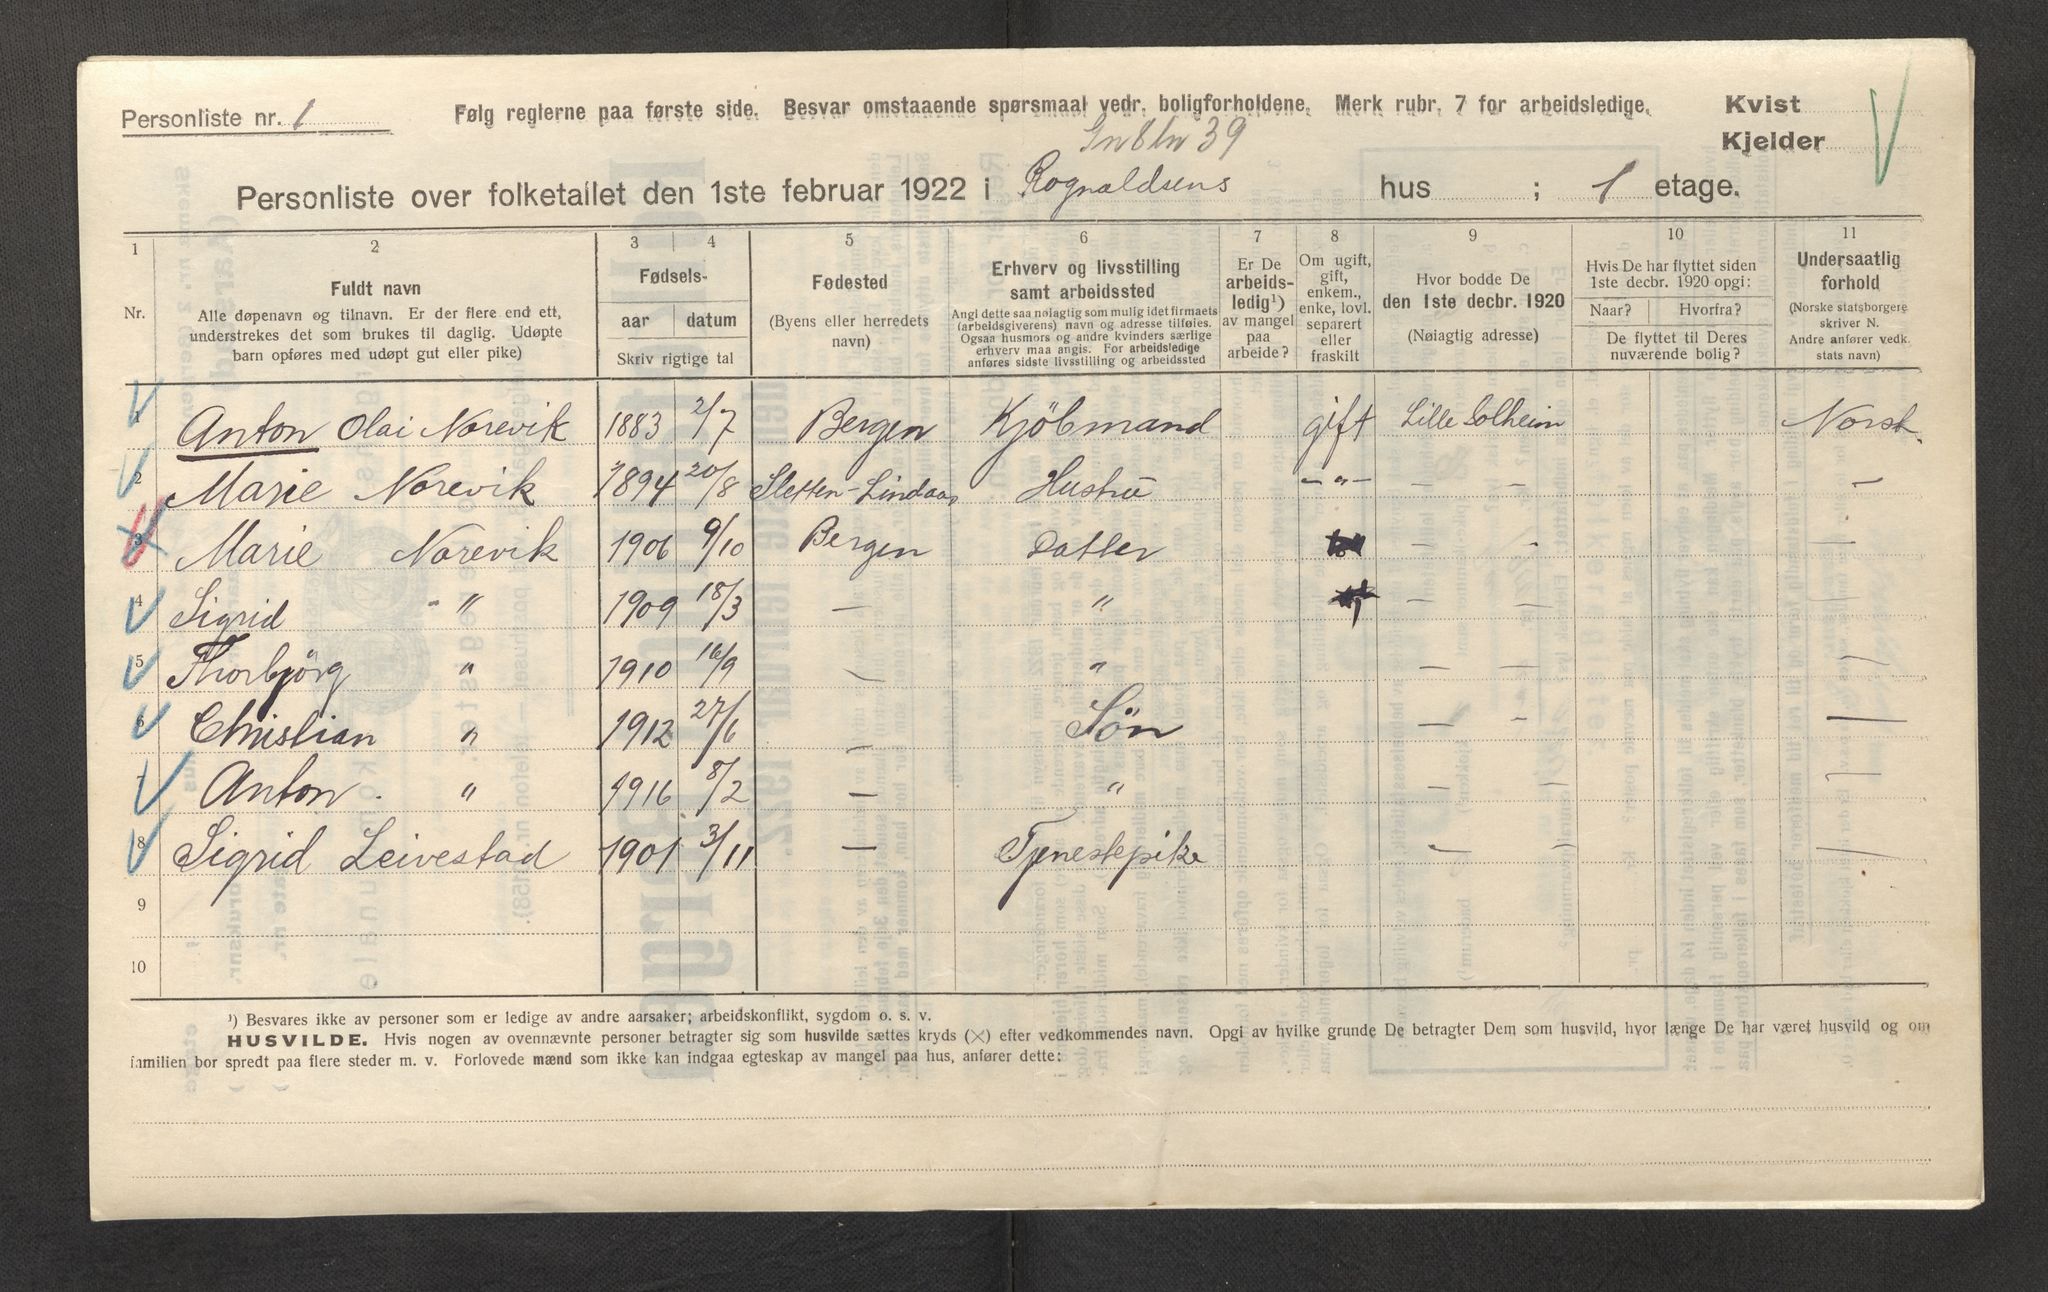 Personliste nr. 1 Følg reglerne paa første side. Besvar omstaaende spørsmaal vedr. boligforholdene. Merk rubr. 7 for arbeidsledige. Kvist
39 Kjelder
Personliste over folketallet den 1ste februar 1922 i Rognaldsens hus ; 1 etage.
1 2 3 4 5 6 7 8 9 10 11
Nr.
Fuldt navn
Alle døpenavn og tilnavn. Er der flere end ett,
understrekes det som brukes til daglig. Udøpte
barn opføres med udøpt gut eller pike)
Fødsels-
aar datum
Skriv rigtige tal
Fødested
(Byens eller herredets
navn)
Erhverv og livsstilling
samt arbeidssted
Angi dette saa nøiaglig som mulig idet firmaets
(arbeidsgiverens) navn og adresse tilføies.
Ogsaa husmors og andre kvinders særlige
erhverv maa angis. For arbeidsledige
anføres sidste livsstilling og arbeidssted
Er De
arbeids-
ledig¹)
av mangel
paa
arbeide?
Om ugift,
gift,
enkem.,
enke, lovl.
separert
eller
fraskilt
Hvor bodde De
den 1ste decbr. 1920
(Nøiagtig adresse)
Hvis De har flyttet siden
1ste decbr. 1920 opgi:
Naar? Hvorfra?
De flyttet til Deres
nuværende bolig?
Undersaatlig
forhold
(Norske statsborgere
skriver N.
Andre anfører vedk.
stats navn)
1 Anton Olai Norevik 1883 2/7 Bergen Kjöbmand gift Lille Solheim Norsk.
2 Marie Norevik 1894 20/8 Sletten-Lindaas Hustru -"- - - -
3 Marie Norevik 1906 9/10 Bergen Datter - - -
4 Sigrid " 1909 18/3 - " - - -
5 Thorbjörg " 1910 16/9 - " - - -
6 Christian " 1912 27/6 - Sön - - -
7 Anton " 1916 8/2 - " - - -
8 Sigrid Leivestad 1901 3/11 - Tjenestepike - - -
9
10
¹) Besvares ikke av personer som er ledige av andre aarsaker; arbeidskonflikt, sygdom o. s. v.
HUSVILDE. Hvis nogen av ovennævnte personer betragter sig som husvilde sættes kryds (×) efter vedkommendes navn. Opgi av hvilke grunde De betragter Dem som husvild, hvor længe De har været husvild og om
familien bor spredt paa flere steder m. v. Forlovede mænd som ikke kan indgaa egteskap av mangel paa hus, anfører dette: